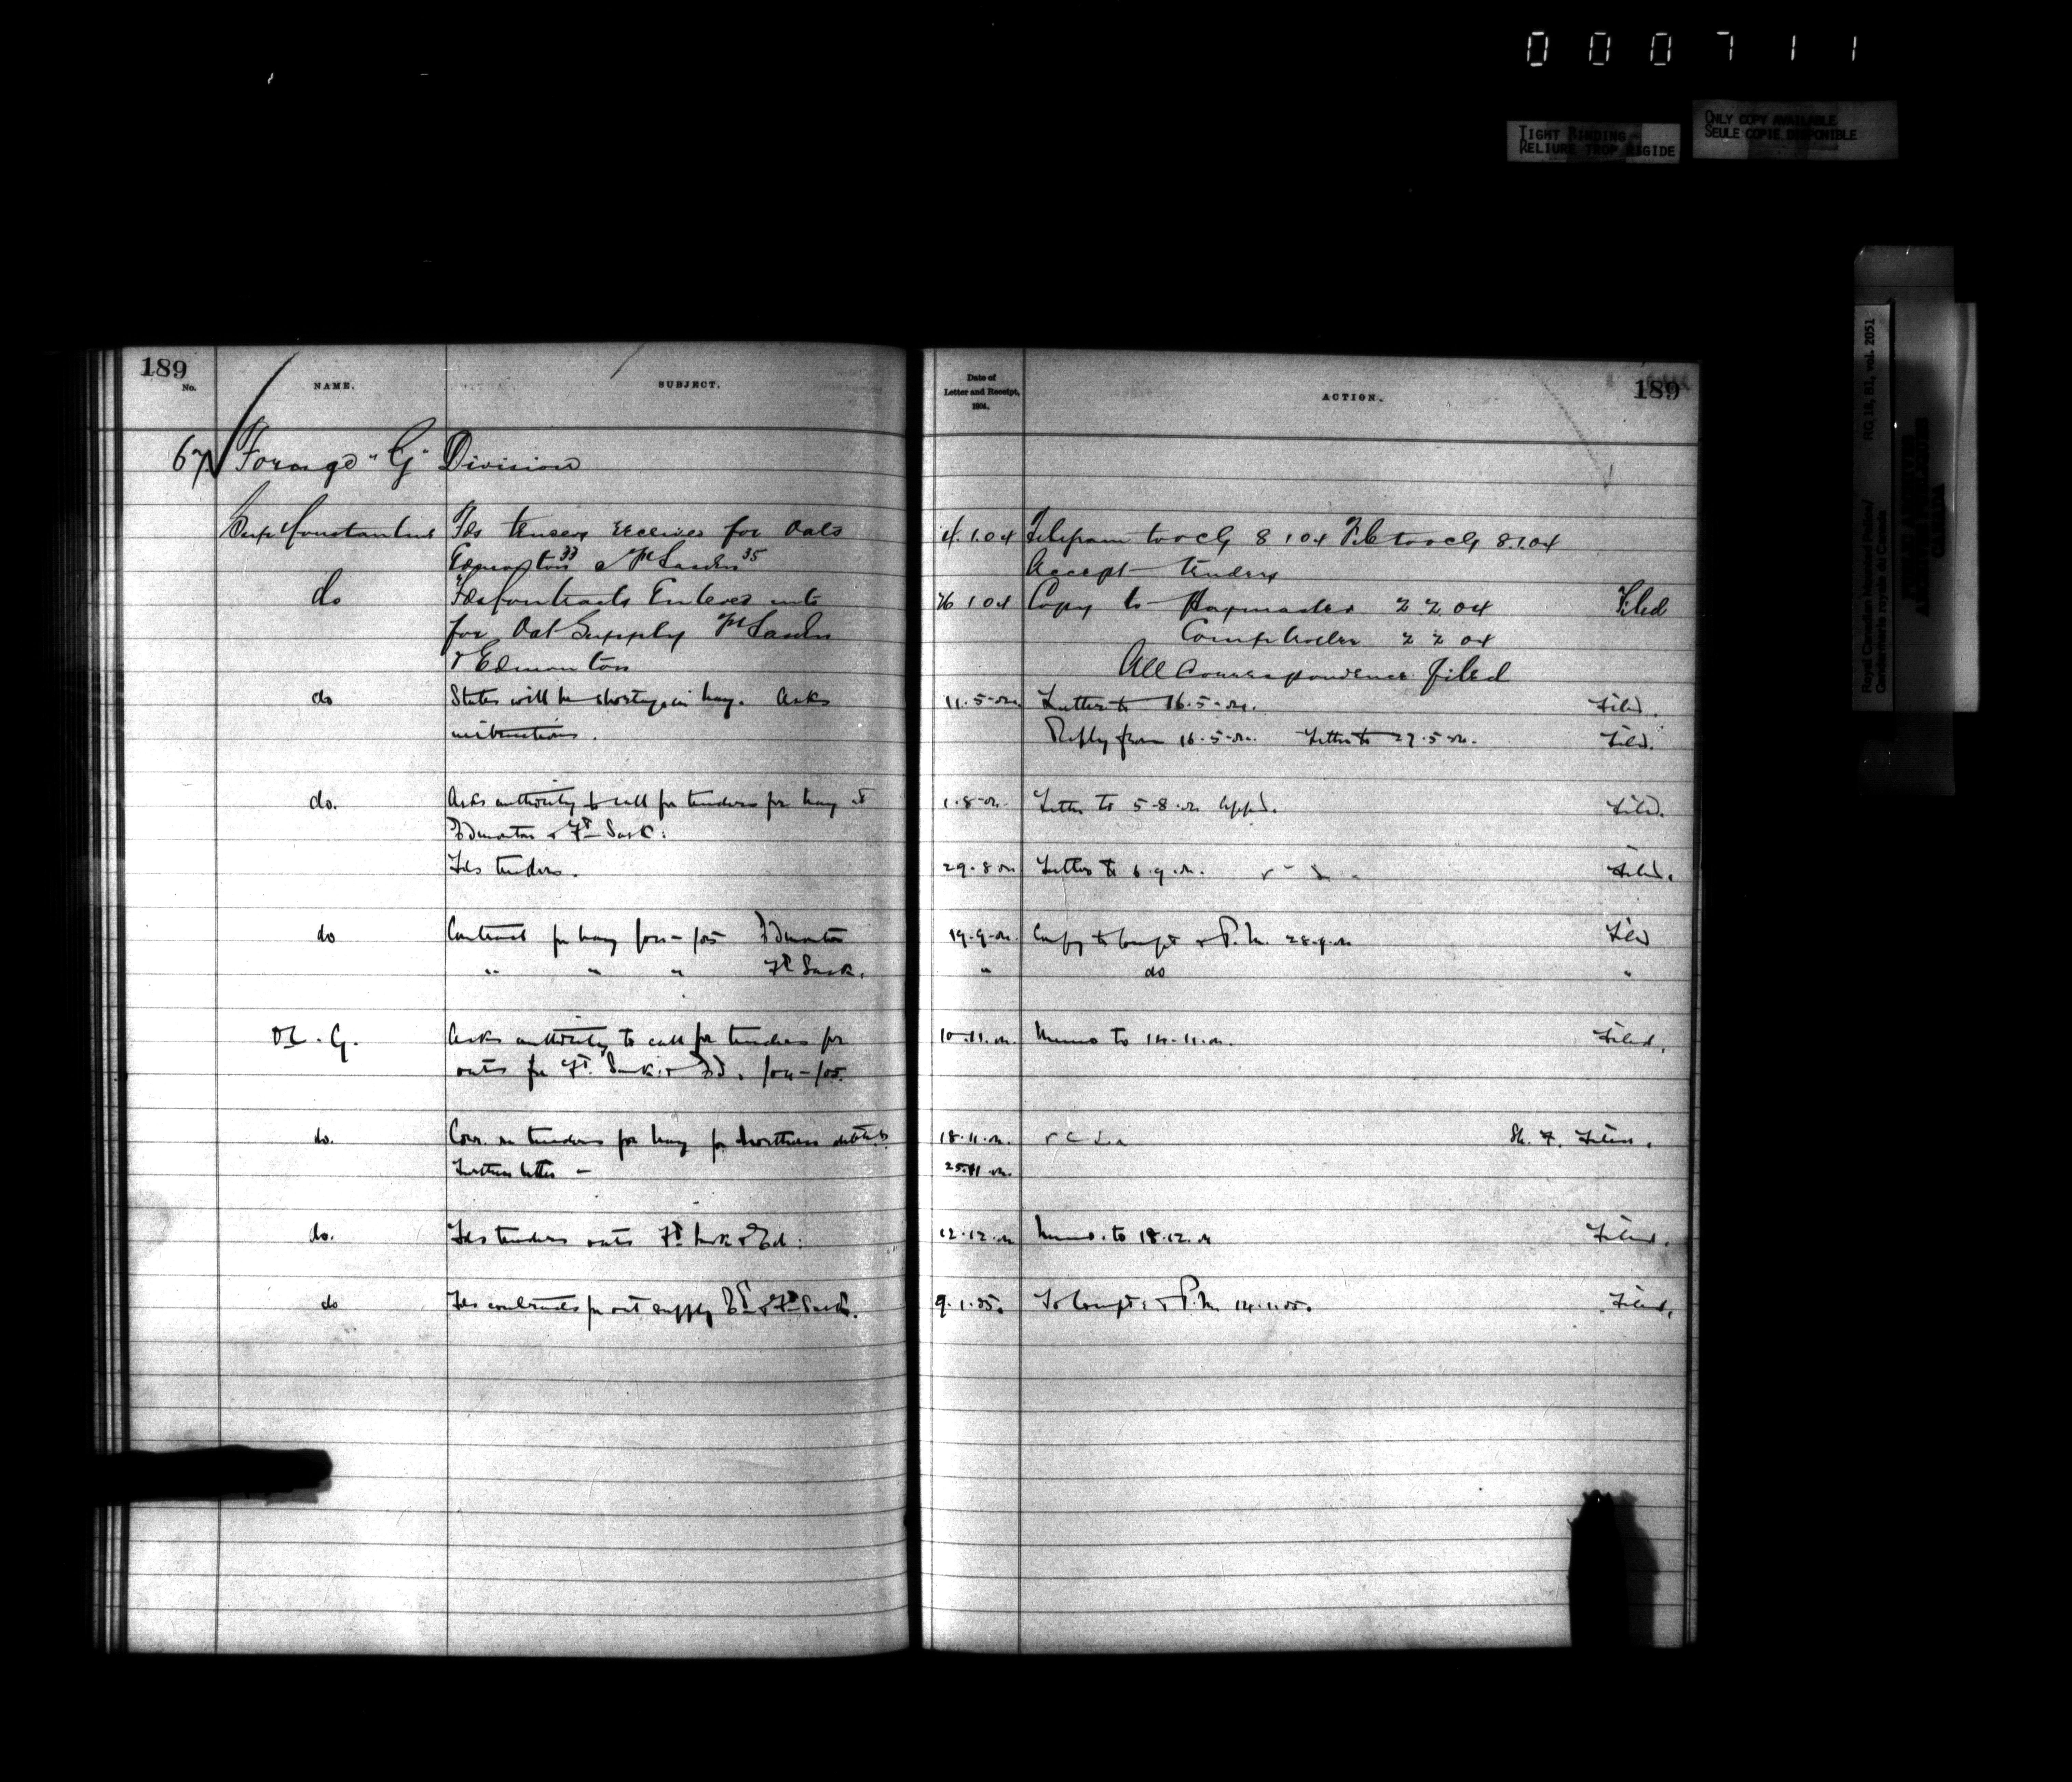 000711
TIGHT BINDING
RELIURE TROP RIGIDE
ONLY COPY AVAILABLE
SEULE COPIE DISPONIBLE
Royal Canadian Mounted Police/ RG 18, B1, vol. 2051
Gendarmerie royale du Canada
189
No. NAME. SUBJECT.
Date of Letter and Receipt, 1904. ACTION.
189
67 Forage "G" Division
Sup Constantine Fds tenders received for Oats 4.1.04 Telegram to oc G 8 1 04 to oc G 8.1.04
Edmonton 33 & Ft Sasktn 35 Accept tenders
do Fds Contracts Entered into 26 1 04 Copy to Paymaster 2 2 04 Filed
for Oat Supply Ft Sasktn Comptroller 2 2 04
& Edmonton All Correspondence filed
do States will be shortage in hay. Asks 11.5.04 Letter to 16.5.04. Filed.
instructions. Reply from 16.5.04. Letter to 27.5.04. Filed.
do. Asks authority to call for tenders for hay at 1.8.04 Letter to 5.8.04 appd. Filed.
Edmonton & Ft Sask:
Fds tenders. 29.8.04 Letter to 6.9.04. Filed.
do Contract for hay /04-/05 Edmonton 19.9.04. Copy to Compt & P.M. 28.9.04 Filed
" " " Ft Sask. " do "
OC. G. Asks authority to call for tenders for 10.11.04. Memo to 14.11.04. Filed.
oats for Ft. Sask. & Ed. /04-/05.
do. Corr. re tenders for hay for Northern 18.11.04. Filed.
Further letter - 25.11.04.
do. Fds tenders oats Ft Sask & Ed: 12.12.04 Memo. to 18.12.04 Filed.
do Fds contracts for oat supply Ed & Ft Sask. 9.1.05. To Compt: & P.M. 14.1.05. Filed.